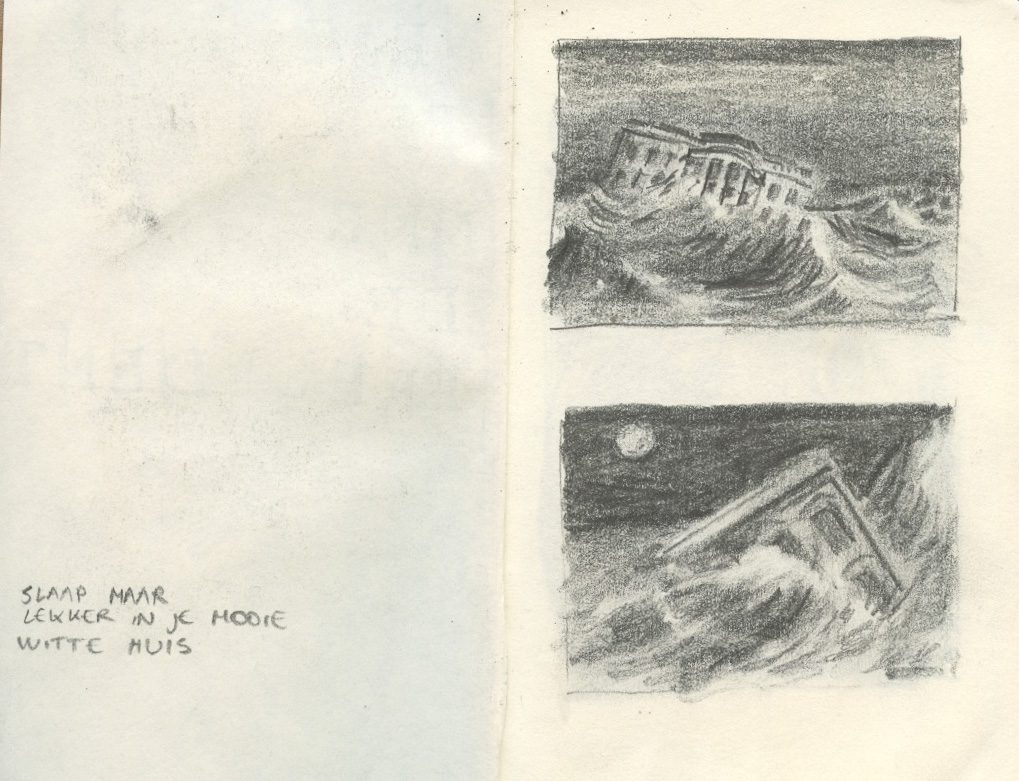 SLAAP MAAR
LEKKER IN JE MOOIE
WITTE HUIS